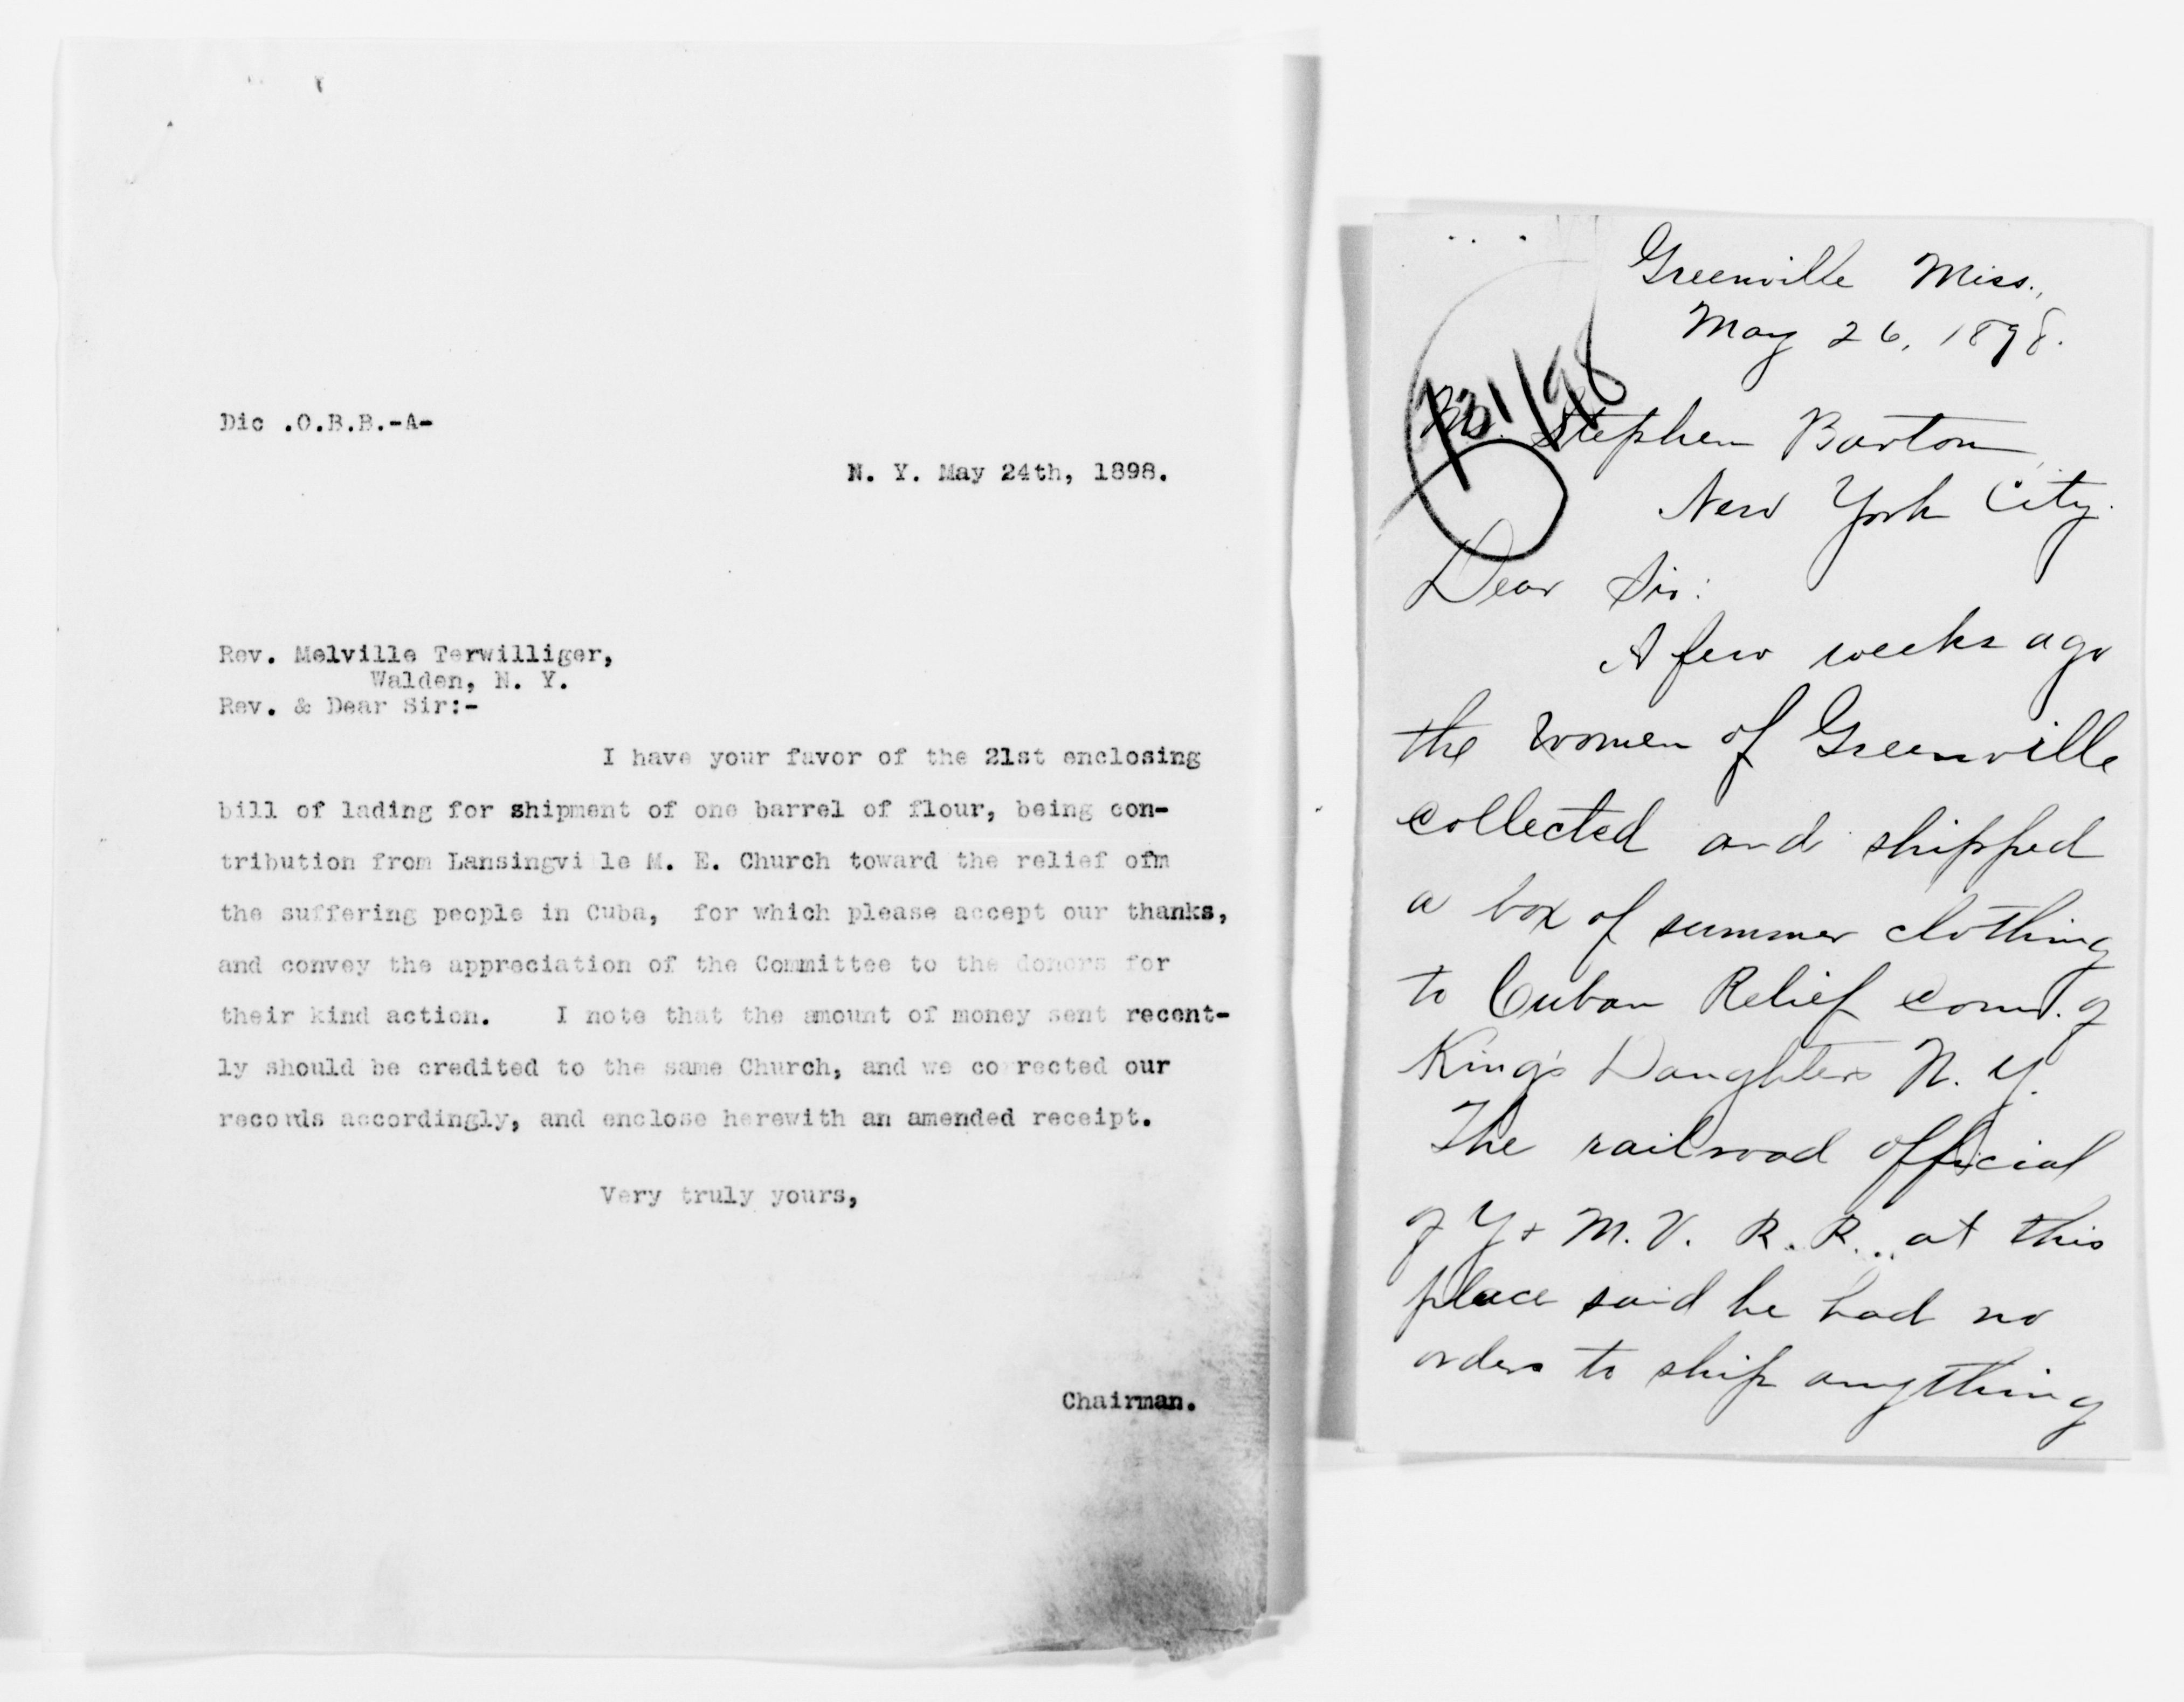 Dic .O.B.B.-A-
N. Y. May 24th, 1898.
Rev. Melville Terwilliger,
Walden, N. Y.
Rev. & Dear Sir:-
I have your favor of the 21st enclosing
bill of lading for shipment of one barrel of flour, being con-
tribution from Lansingvi le M. E. Church toward the relief ofm
the suffering people in Cuba, for which please accept our thanks,
and convey the appreciation of the Committee to the donors for
their kind action. I note that the amount of money sent recent-
ly should be credited to the same Church, and we co rected our
records accordingly, and enclose herewith an amended receipt.
Very truly yours,
Chairman.
Greenville Miss.,
May 26, 1898.
Stephen Barton
New York City.
Dear Sir:
A few weeks ago
the women of Greenville
collected and shipped
a box of summer clothing
to Cuban Relief Com. of
King's Daughters N. Y.
The railroad official
of Y & M. V. R. R. at this
place said he had no
orders to ship anything